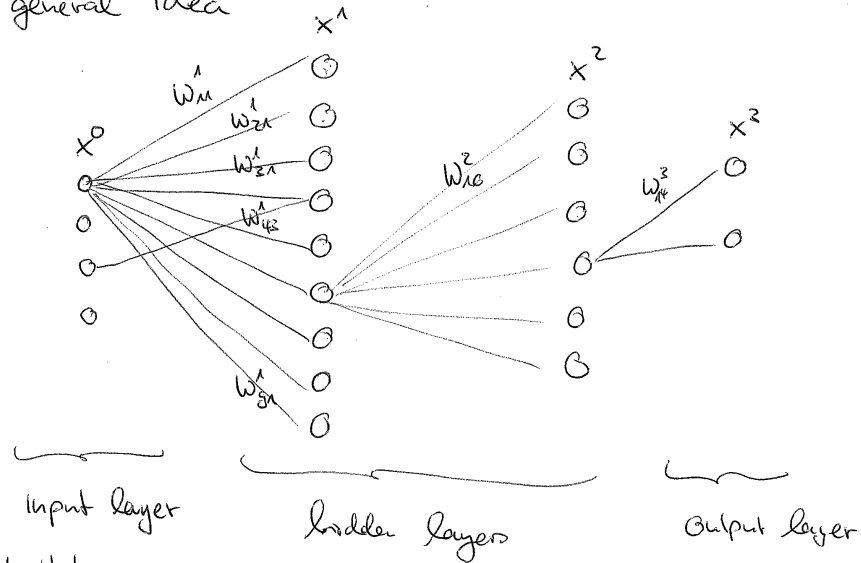 general idea
x¹
x²
x³
x⁰
w¹₁₁
w¹₂₁
w¹₃₁
w¹₄₃
w¹₉₁
w²₁₆
w³₁₄
input layer
hidden layers
output layer